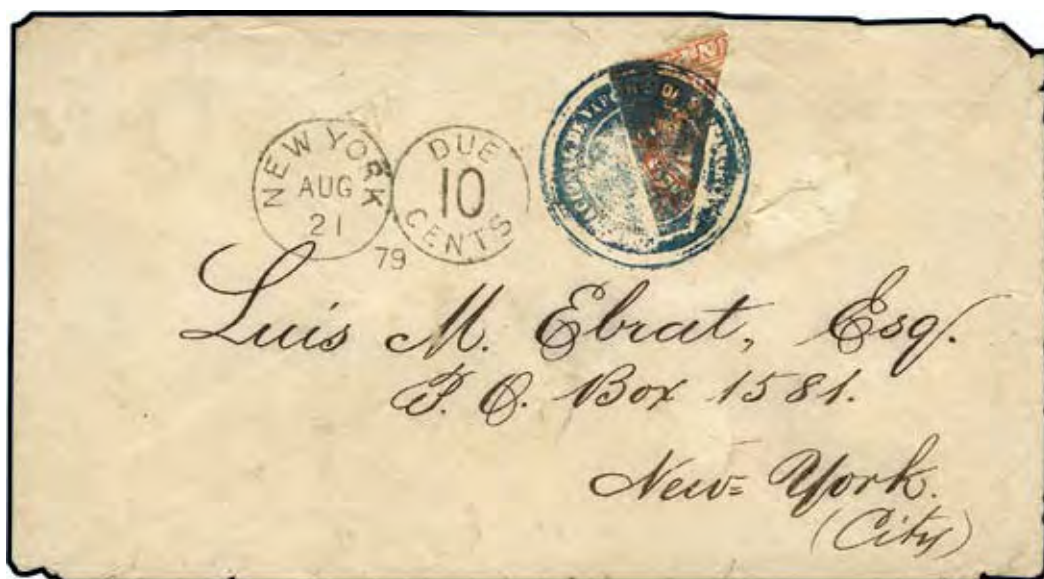 NEW YORK
AUG
21
79
DUE
10
CENTS
Luis M. Ebrat, Esq.
P. O. Box 1581.
New=York.
(City)